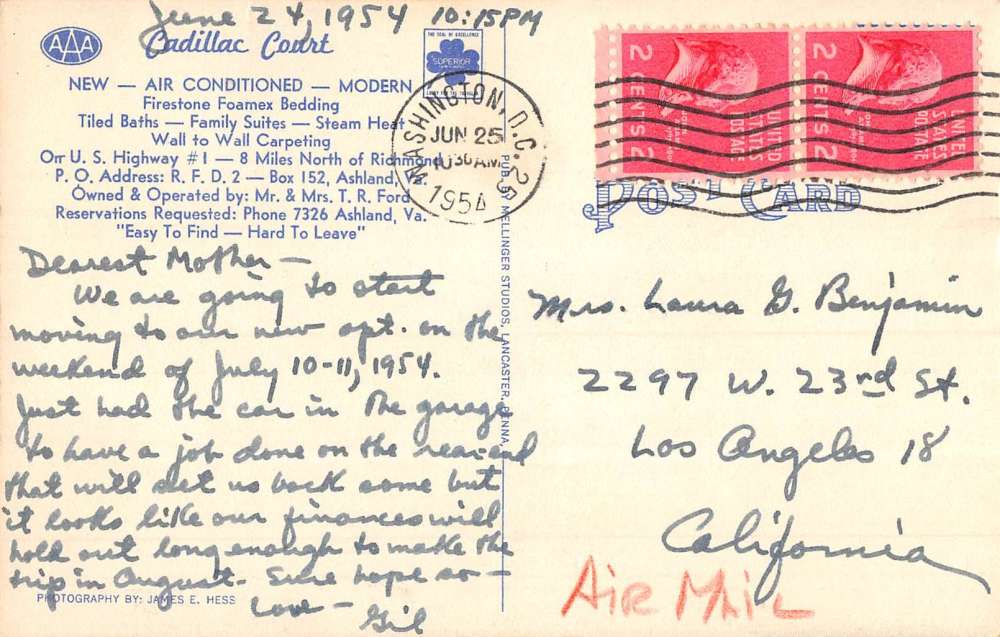 June 24, 1954 10:15PM
AAA
Cadillac Court
NEW — AIR CONDITIONED — MODERN
Firestone Foamex Bedding
Tiled Baths — Family Suites — Steam Heat
Wall to Wall Carpeting
On U. S. Highway #1 — 8 Miles North of Richmond
P. O. Address: R. F. D. 2 — Box 152, Ashland, Va.
Owned & Operated by: Mr. & Mrs. T. R. Ford
Reservations Requested: Phone 7326 Ashland, Va.
"Easy To Find — Hard To Leave"
SUPERIOR
Dearest Mother —
We are going to start
moving to our new apt. on the
weekend of July 10-11, 1954.
Just had the car in the garage
to have a job done on the rear end
that will set us back some but
it looks like our finances will
hold out long enough to make the
trip in August. Sure hope so —
Love — Gil
PHOTOGRAPHY BY: JAMES E. HESS
PUB. BY MELLINGER STUDIOS, LANCASTER, PENNA.
WASHINGTON, D.C. 25
JUN 25
10 30 AM
1954
2 CENTS 2
UNITED STATES POSTAGE
2 CENTS 2
UNITED STATES POSTAGE
POST CARD
Mrs. Laura G. Benjamin
2297 W. 23rd St.
Los Angeles 18
California
AIR MAIL